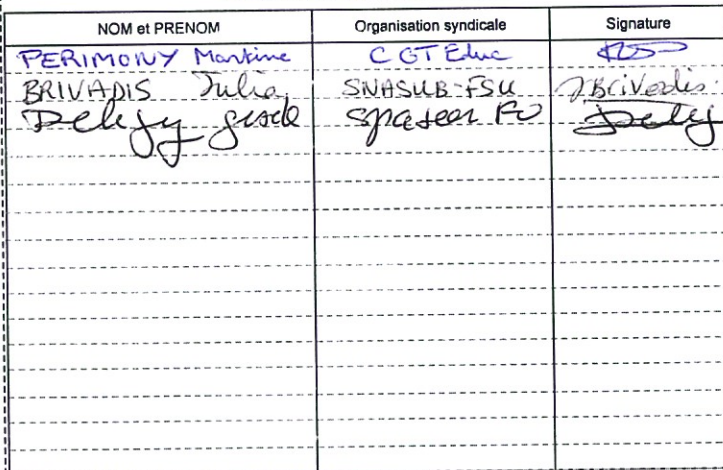 NOM et PRENOM Organisation syndicale Signature
PERIMONY Martine CGT Educ
BRIVADIS Julia SNASUB-FSU JBrivadis
FO